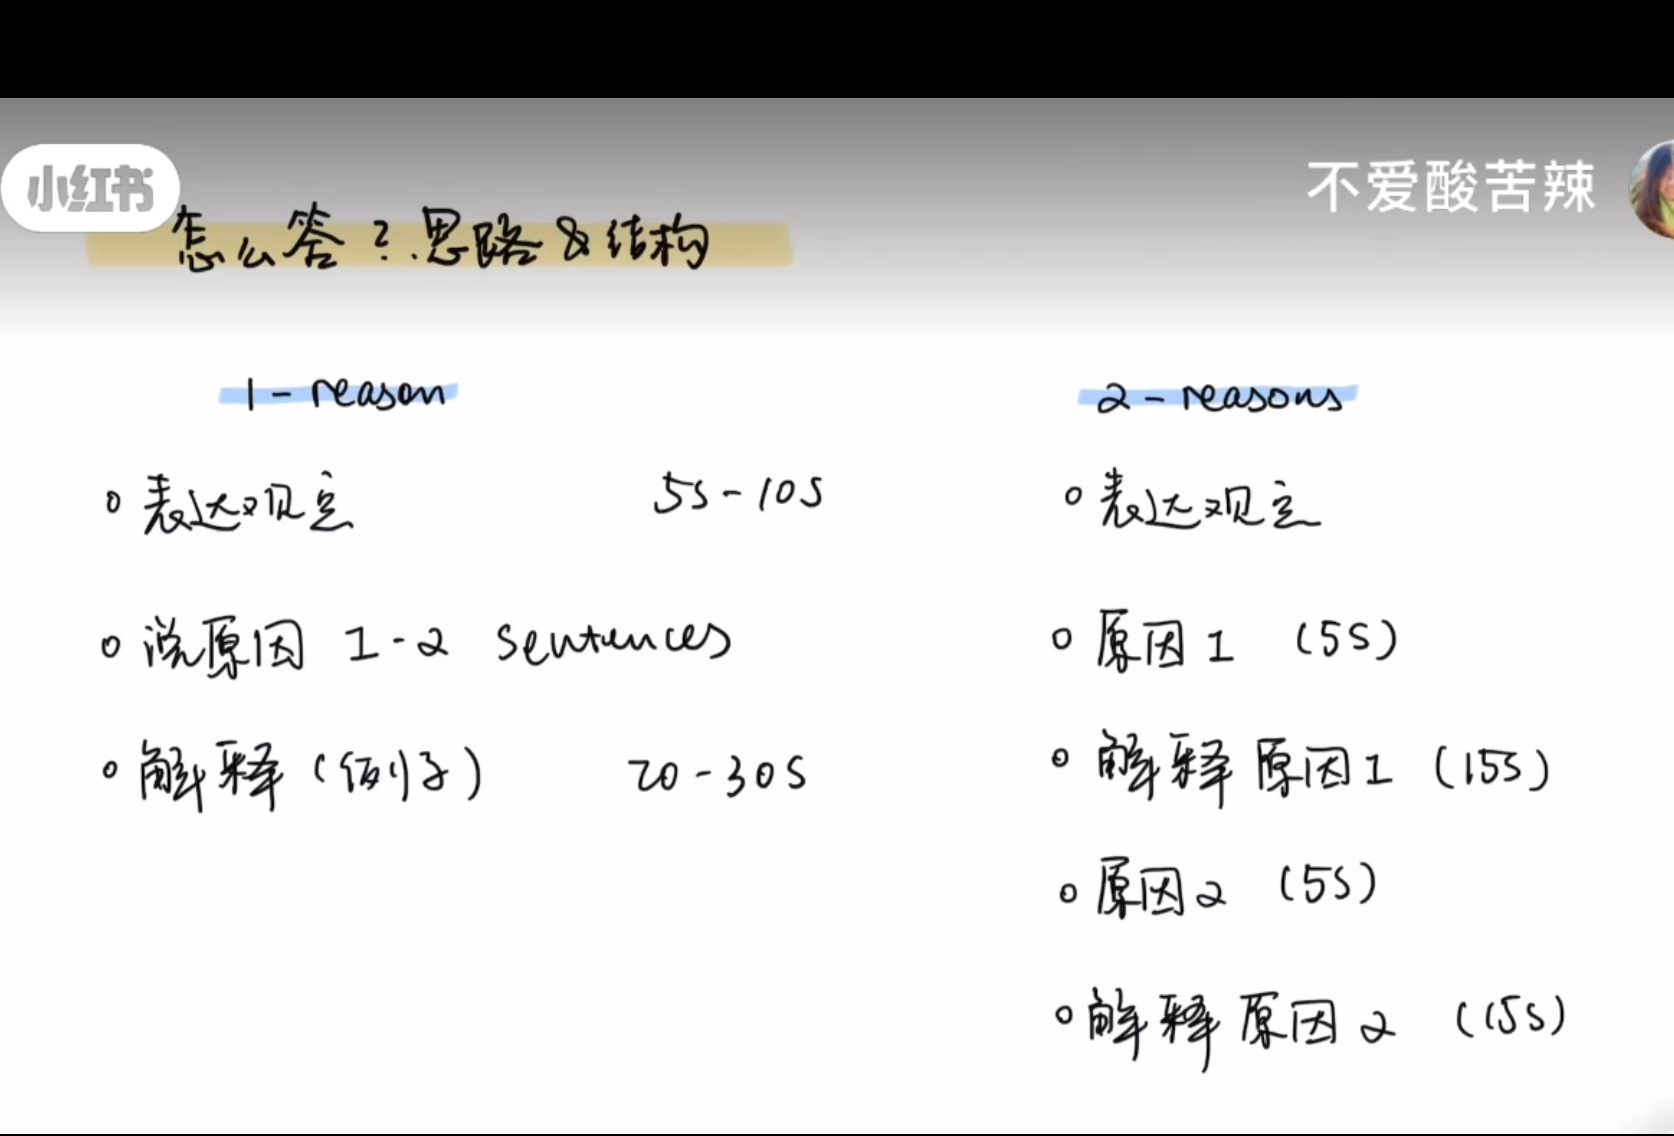 小红书
不爱酸苦辣
怎么答？思路&结构
1-reason
表达观点 5s-10s
说原因 1-2 sentences
解释(例子) 20-30s
2-reasons
表达观点
原因1 (5s)
解释原因1 (15s)
原因2 (5s)
解释原因2 (15s)